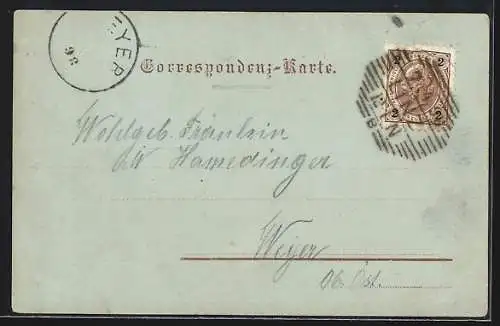 EYER
98
Correspondenz-Karte.
2 2
2 2
WIEN
Wohlgeb. Fräulein
Hamedinger
Weyer
Ob. Öst.